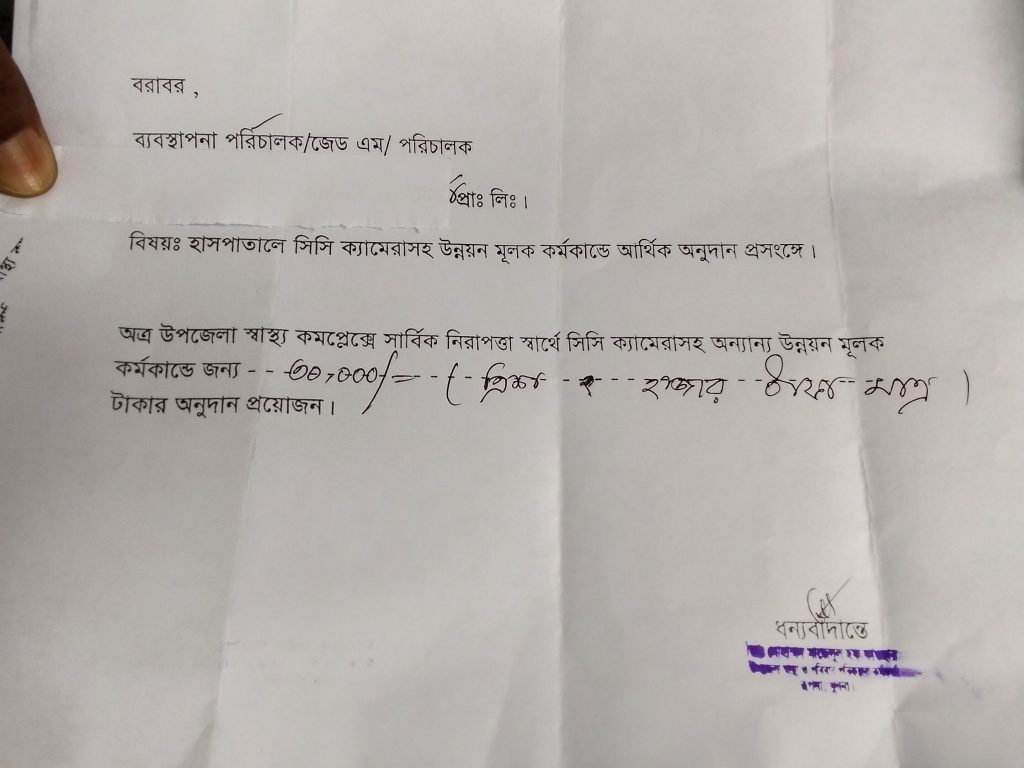 বরাবর ,
ব্যবস্থাপনা পরিচালক/জেড এম/ পরিচালক
প্রাঃ লিঃ।
বিষয়ঃ হাসপাতালে সিসি ক্যামেরাসহ উন্নয়ন মূলক কর্মকান্ডে আর্থিক অনুদান প্রসংঙ্গে।
অত্র উপজেলা স্বাস্থ্য কমপ্লেক্সে সার্বিক নিরাপত্তা স্বার্থে সিসি ক্যামেরাসহ অন্যান্য উন্নয়ন মূলক
কর্মকান্ডে জন্য -- ৩০,০০০/= -- (- ত্রিশ -- --- হাজার -- টাকা -- মাত্র )
টাকার অনুদান প্রয়োজন।
ধন্যবাদান্তে